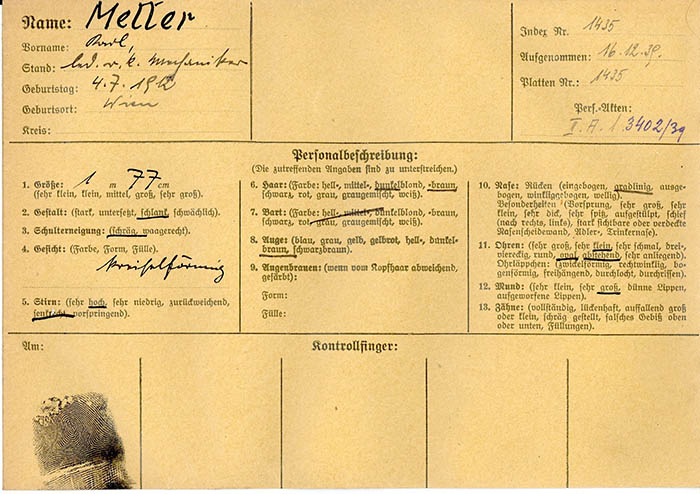 Name: Meller
Vorname: Karl,
Stand: led. r. k. Mechaniker
Geburtstag: 4.7.1912
Geburtsort: Wien
Kreis:
Index Nr. 1435
Aufgenommen: 16.12.39.
Platten Nr.: 1435
Pers.-Akten:
II. A. 1. 3402/39
Personalbeschreibung:
(Die zutreffenden Angaben sind zu unterstreichen.)
1. Größe: 1 m 77 cm
(sehr klein, klein, mittel, groß, sehr groß).
2. Gestalt: (stark, untersetzt, schlank, schwächlich).
3. Schulterneigung: (schräg, waagerecht).
4. Gesicht: (Farbe, Form, Fülle).
kreiselförmig
5. Stirn: (sehr hoch, sehr niedrig, zurückweichend,
senkrecht, vorspringend).
6. Haar: (Farbe: hell-, mittel-, dunkelblond, -braun,
schwarz, rot, grau, graugemischt, weiß).
7. Bart: (Farbe: hell-, mittel-,
schwarz, rot, grau, graugemischt, weiß).
8. Auge: (blau, grau, gelb, gelbrot, hell-, dunkel-
braun, schwarzbraun).
9. Augenbrauen: (wenn vom Kopfhaar abweichend,
gefärbt):
Form:
Fülle:
10. Nase: Rücken (eingebogen, gradlinig, ausge-
bogen, winkliggebogen, wellig).
Besonderheiten (Vorsprung, sehr groß, sehr
klein, sehr dick, sehr spitz, aufgestülpt, schief
(nach rechts, links), stark sichtbare oder verdeckte
Nasenscheidewand, Adler-, Trinkernase).
11. Ohren: (sehr groß, sehr klein, sehr schmal, drei-,
viereckig, rund, oval, abstehend, sehr anliegend).
Ohrläppchen: (zwickelförmig, rechtwinklig, bo-
genförmig, freihängend, durchlocht, durchrissen).
12. Mund: (sehr klein, sehr groß, dünne Lippen,
aufgeworfene Lippen).
13. Zähne: (vollständig, lückenhaft, auffallend groß
oder klein, schräg gestellt, falsches Gebiß oben
oder unten, Füllungen).
Am:
Kontrollfinger: